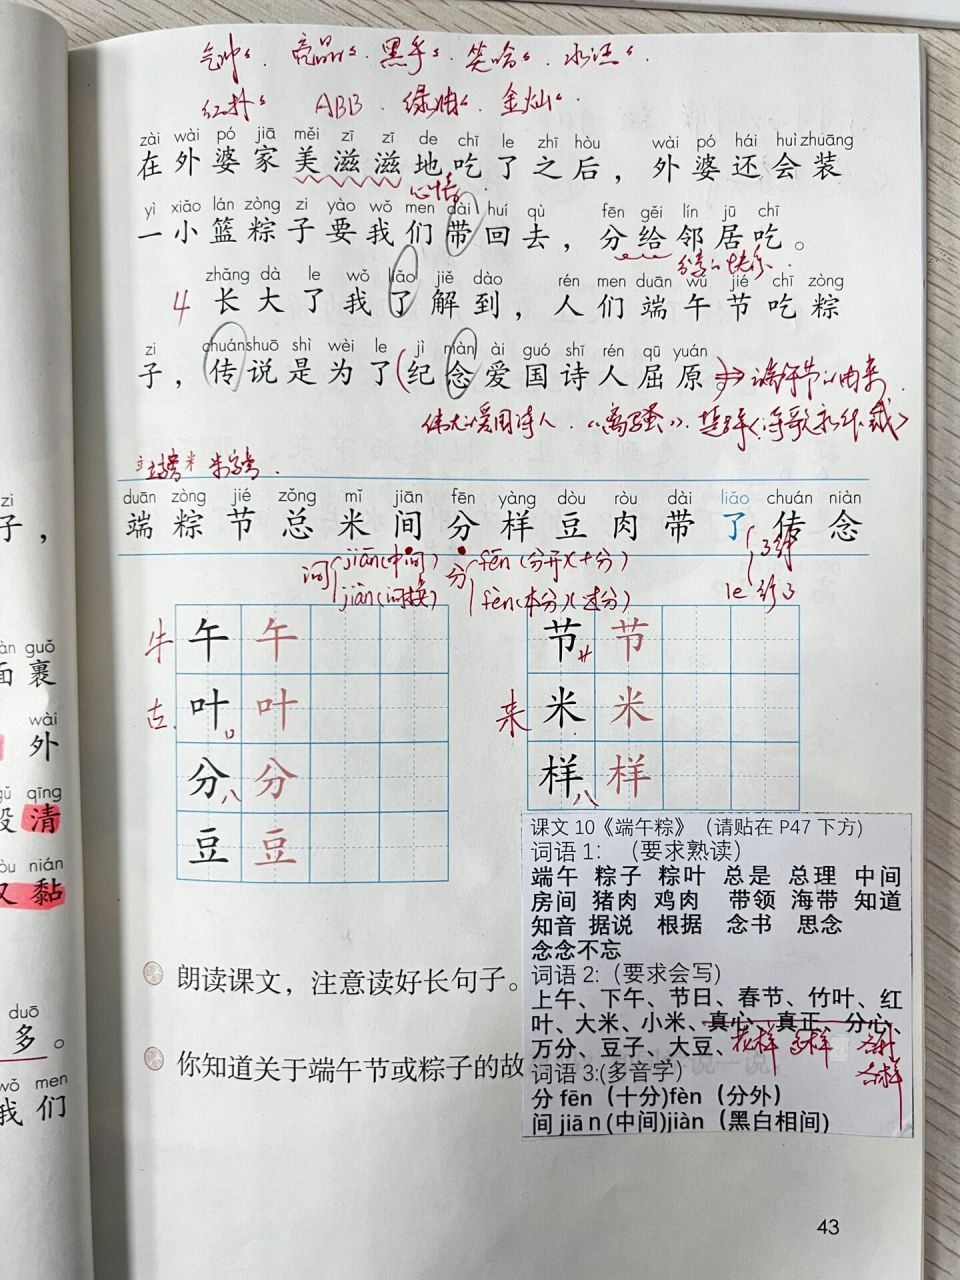 气冲冲、亮晶晶、黑乎乎、笑哈哈、水汪汪、
红扑扑 ABB 绿油油 金灿灿
zài wài pó jiā měi zī zī de chī le zhī hòu wài pó hái huì zhuāng
在外婆家美滋滋地吃了之后，外婆还会装
心情
yì xiǎo lán zòng zi yào wǒ men dài huí qù fēn gěi lín jū chī
一小篮粽子要我们带回去，分给邻居吃。
分享的快乐
zhǎng dà le wǒ liǎo jiě dào rén men duān wǔ jié chī zòng
4 长大了我了解到，人们端午节吃粽
zi chuán shuō shì wèi le jì niàn ài guó shī rén qū yuán
子，传说是为了(纪念爱国诗人屈原。)→端午节的由来
伟大的爱国诗人《离骚》
立字旁 米字旁
duān zòng jié zǒng mǐ jiān fēn yàng dòu ròu dài liǎo chuán niàn
端粽节总米间分样豆肉带了传念
间 jiān(中间) 分 fēn(分开)(十分) 了解
jiàn(间接) fèn(本分)(过分) le
牛 午 午 节 节
古 叶 叶 来 米 米
分 分 样 样
豆 豆
课文 10《端午粽》（请贴在 P47 下方）
词语 1：（要求熟读）
端午 粽子 粽叶 总是 总理 中间
房间 猪肉 鸡肉 带领 海带 知道
知音 据说 根据 念书 思念
念念不忘
词语 2:（要求会写）
上午、下午、节日、春节、竹叶、红
叶、大米、小米、真心、真正、分心、
万分、豆子、大豆、花样 这样 各种
各样
词语 3:(多音字)
分 fēn（十分)fèn（分外）
间 jiān(中间)jiàn（黑白相间)
朗读课文，注意读好长句子。
你知道关于端午节或粽子的故
43
zi
子，
àn guǒ
面裹
wài
外
gǔ qīng
股清
yòu nián
又黏
duō
多。
wǒ men
我们